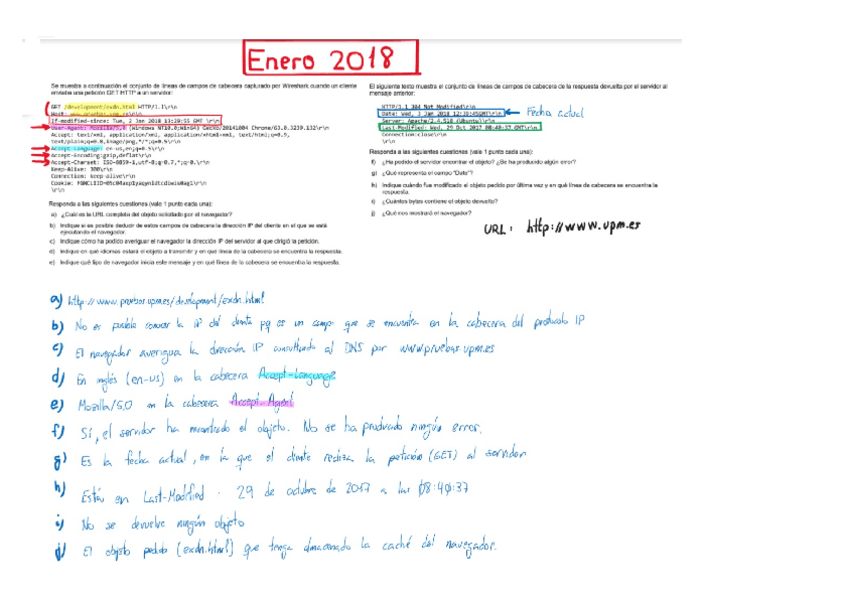 Enero 2018
Se muestra a continuación el conjunto de líneas de campos de cabecera capturado por Wireshark cuando un cliente
enviaba una petición GET HTTP a un servidor:
GET /development/exdn.html HTTP/1.1\r\n
Host:
If-modified-since: Tue, 2 Jan 2018 13:29:55 GMT \r\n
User-Agent: Mozilla/5.0 (Windows NT10.0;Win64) Gecko/20141004 Chrome/63.0.3239.132\r\n
Accept: text/xml, application/xml, application/xhtml+xml, text/html;q=0.9,
text/plain;q=0.8,image/png,*/*;q=0.5\r\n
Accept-Language: en-us,en;q=0.5\r\n
Accept-Encoding:gzip,deflat\r\n
Accept-Charset: ISO-8859-1,utf-8;q=0.7,*;q=0.\r\n
Keep-Alive: 300\r\n
Connection: keep-alive\r\n
Cookie:
\r\n
Responda a las siguientes cuestiones (vale 1 punto cada una):
a) ¿Cuál es la URL completa del objeto solicitado por el navegador?
b) Indique si es posible deducir de estos campos de cabecera la dirección IP del cliente en el que se está
ejecutando el navegador.
c) Indique cómo ha podido averiguar el navegador la dirección IP del servidor al que dirigió la petición.
d) Indique en qué idiomas estará el objeto a transmitir y en qué línea de la cabecera se encuentra la respuesta.
e) Indique qué tipo de navegador inicia este mensaje y en qué línea de la cabecera se encuentra la respuesta.
El siguiente texto muestra el conjunto de líneas de campos de cabecera de la respuesta devuelta por el servidor al
mensaje anterior:
HTTP/1.1 304 Not Modified\r\n
Date: Wed, 3 Jan 2018 12:39:45GMT\r\n
Fecha actual
Server: Apache/2.4.518 (Ubuntu)\r\n
Last-Modified: Wed, 29 Oct 2017 08:40:37 GMT\r\n
Connection:close\r\n
\r\n
Responda a las siguientes cuestiones (vale 1 punto cada una):
f) ¿Ha podido el servidor encontrar el objeto? ¿Se ha producido algún error?
g) ¿Qué representa el campo "Date"?
h) Indique cuándo fue modificado el objeto pedido por última vez y en qué línea de cabecera se encuentra la
respuesta.
i) ¿Cuántos bytes contiene el objeto devuelto?
j) ¿Qué nos mostrará el navegador?
URL: http://www.upm.es
a) http://www.pruebas.upm.es/development/exdn.html
b) No es posible conocer la IP del cliente pq es un campo que se encuentra en la cabecera del protocolo IP
c) El navegador averigua la dirección IP consultando al DNS por www.pruebas.upm.es
d) En inglés (en-us) en la cabecera Accept-Language
e) Mozilla/5.0 en la cabecera Accept-Agent
f) Sí, el servidor ha encontrado el objeto. No se ha producido ningún error.
g) Es la fecha actual, en la que el cliente realiza la petición (GET) al servidor
h) Está en Last-Modified. 29 de octubre de 2017 a las 08:40:37
i) No se devuelve ningún objeto
j) El objeto pedido (exdn.html) que tenga almacenado la caché del navegador.